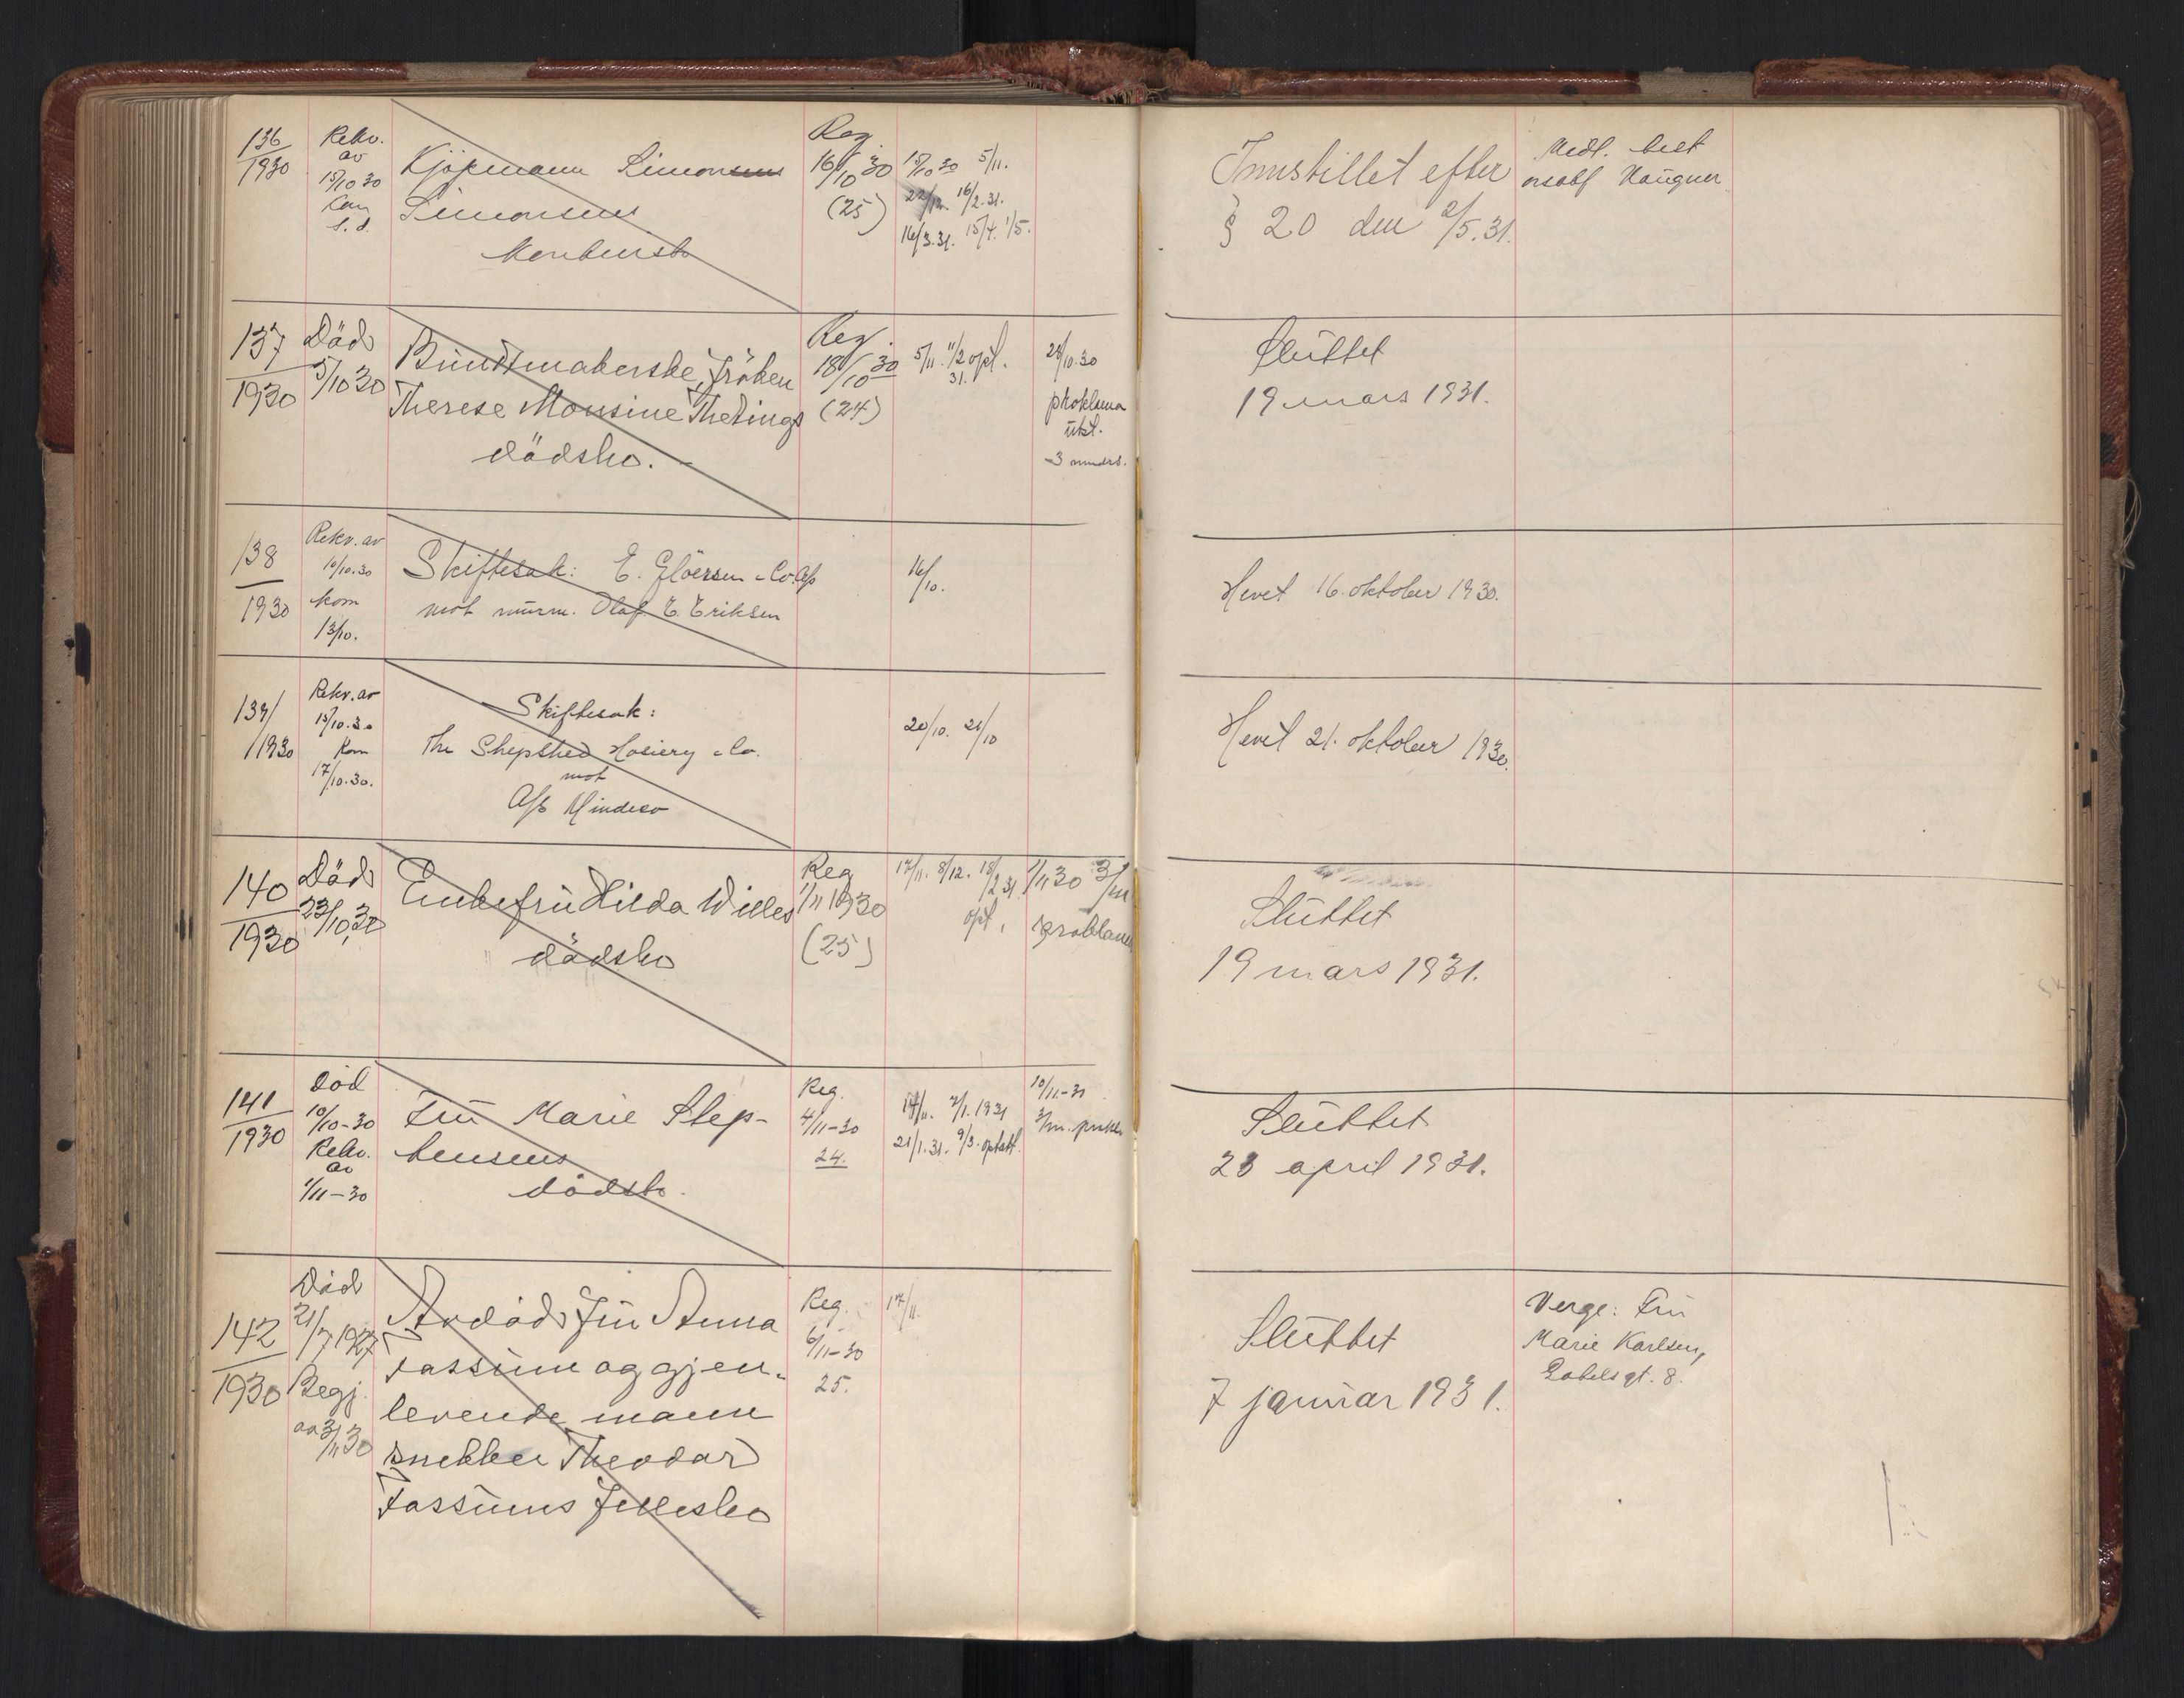 136
1930
Rekv.
av
15/10 30
kom
s. d.
Kjøpmann Simon
Simonsens
konkursbo
Reg.
16/10 30
(25)
15/10 30 5/11.
22/12. 16/2.31.
16/3.31. 15/4. 1/5.
Innstillet efter
§ 20 den 2/5.31.
Midl. best
orsakf Haugner
137
1930
Död
5/10 30
Buntmakerske, fröken
Therese Monsine Thetings
dödsbo.
Reg.
18/10 30
(24)
5/11. 11/2 opt.
31.
24/10.30
proklama
utst.
3 mndrs.
Sluttet
19 mars 1931.
138
1930
Rekv. av
10/10.30
kom
13/10.
Skiftesak: E. Glöersen & Co. A/s
mot murm. Olaf E. Eriksen
16/10.
Hevet 16. oktober 1930.
139/
1930
Rekv. av
15/10.30
kom
17/10.30.
Skiftesak:
The Shepshed Hosiery & Co.
mot
A/s Mindeco
20/10. 21/10
Hevet 21. oktober 1930.
140
1930
Död
23/10 30
Enkefru Hilda Willes
dödsbo
Reg
1/11 1930
(25)
17/11. 8/12. 18/2 31
opt.
1/11 30 3/m
proklama
Sluttet
19 mars 1931.
141
1930
Död
10/10-30
Rekv.
av
1/11-30
Fru Marie Step-
hensens
dödsbo.
Reg.
4/11-30
24.
17/11. 7/1.1931
21/1.31. 9/3. optatt.
10/11-30
3/m. prokl.
Sluttet
28 april 1931.
142
1930
Död
21/7 1927
Begj.
av 3/11 30
Avdöde fru Anna
Fossum og gjen-
levende mann
snekker Theodor
Fossums fellesbo
Reg.
6/11-30
25.
17/11.
Sluttet
7 januar 1931.
Verge: Fru
Marie Karlsen,
Gabels gt. 8.